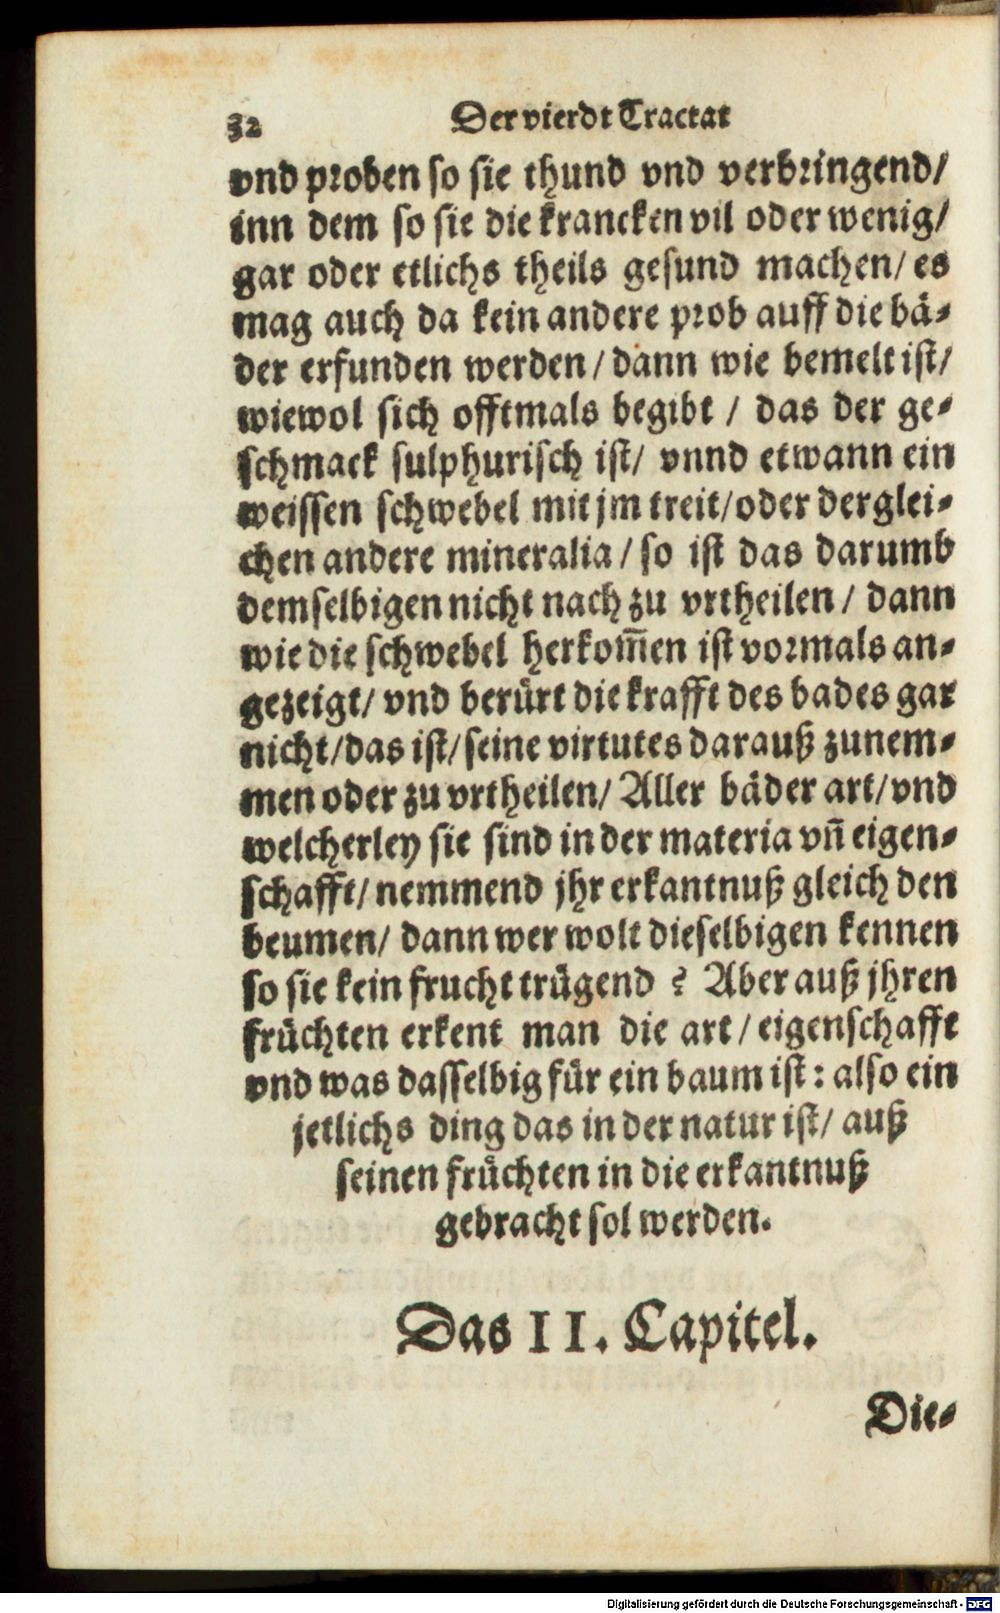 32 Der vierdt Tractat
vnd proben so sie thund vnd verbringend/
inn dem so sie die krancken vil oder wenig/
gar oder etlichs theils gesund machen/ es
mag auch da kein andere prob auff die bä-
der erfunden werden/ dann wie bemelt ist/
wiewol sich offtmals begibt / das der ge-
schmack sulphurisch ist/ vnnd etwann ein
weissen schwebel mit jm treit/ oder derglei-
chen andere mineralia / so ist das darumb
demselbigen nicht nach zu vrtheilen / dann
wie die schwebel herkom̃en ist vormals an-
gezeigt/ vnd berürt die krafft des bades gar
nicht/ das ist/ seine virtutes darauß zunem-
men oder zu vrtheilen/ Aller bäder art/ vnd
welcherley sie sind in der materia vñ eigen-
schafft/ nemmend jhr erkantnuß gleich den
beumen/ dann wer wolt dieselbigen kennen
so sie kein frucht trügend ? Aber auß jhren
früchten erkent man die art / eigenschafft
vnd was dasselbig für ein baum ist : also ein
jetlichs ding das in der natur ist/ auß
seinen früchten in die erkantnuß
gebracht sol werden.
Das II. Capitel.
Die-
Digitalisierung gefördert durch die Deutsche Forschungsgemeinschaft - DFG